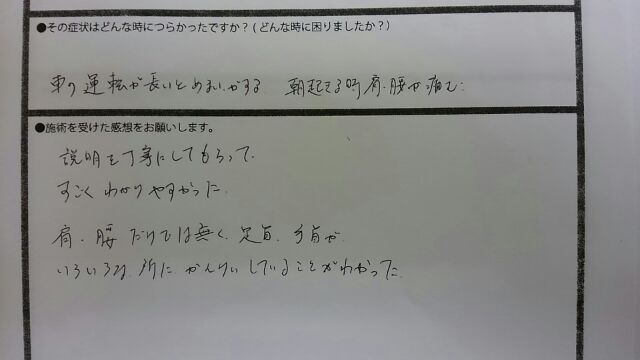 ●その症状はどんな時につらかったですか？(どんな時に困りましたか？)
車の運転が長いとめまいがする 朝起きる時肩、腰が痛む
●施術を受けた感想をお願いします。
説明を丁寧にしてもらって、
すごくわかりやすかった。
肩、腰だけでは無く、足首、手首が
いろいろな所にかんけいしていることがわかった。